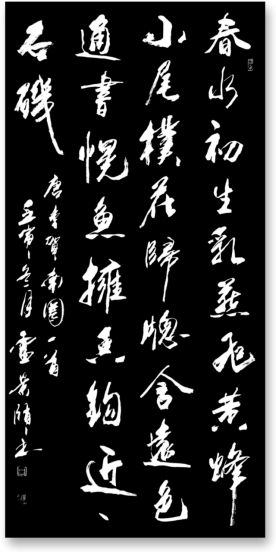 春水初生乳燕飛黃蜂
小尾撲花歸牕含遠色
通書幌魚擁香鈎近
石磯
唐李賀南園一首
壬寅冬月